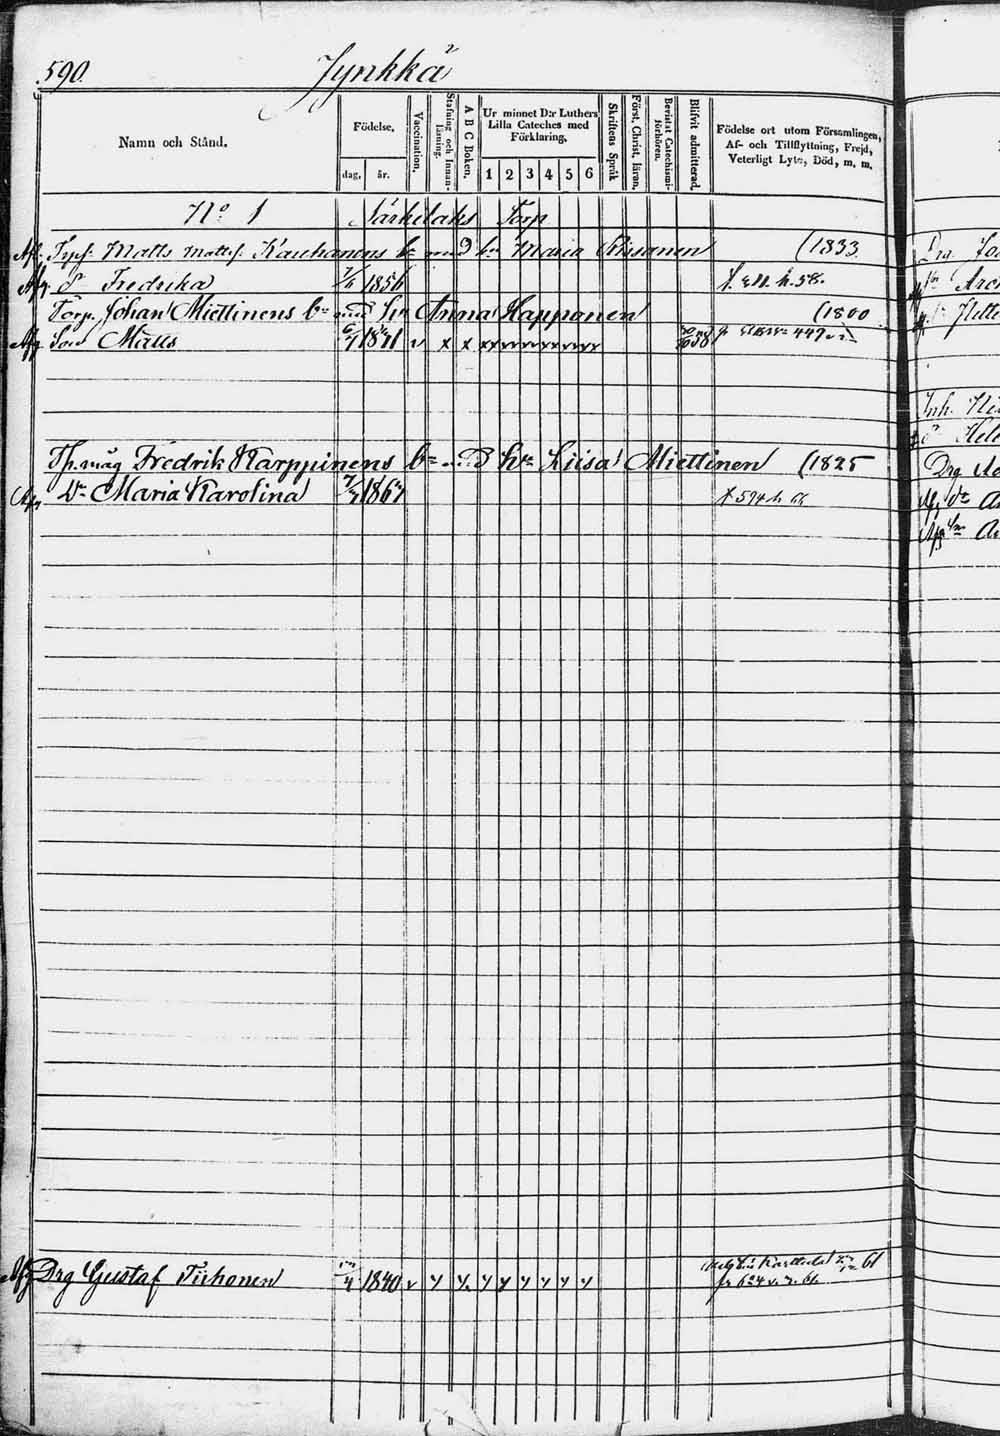 590. Jynkkä
Namn och Stånd.
Födelse.
dag. år.
Vaccination.
Stafning och Innan-läsning.
A B C Boken.
Ur minnet D:r Luthers Lilla Cateches med Förklaring.
1 2 3 4 5 6
Skriftens Språk
Först. Christ. läran.
Bevistat Catechismi-förhören.
Blifvit admitterad.
Födelse ort utom Församlingen, Af- och Tillflyttning, Frejd, Veterligt Lyte, Död, m. m.
No 1 Särkilaks Torp
Matts Mattss. Kauhanens bn med hu Maria Rissanen (1833
Afg. Dr Fredrika 1856
Torp. Johan Miettinens bn med hu Anna Happonen (1800
Afg Son Matts 6/7 1841 v x x 38 447
Tp. måg Fredrik Karppinens bn med hu Liisa Miettinen (1825
Afg Dr Maria Karolina 7/7 1867 594
Afg Drg Gustaf Tirhonen /4 1840 v 61
fr 624
Drg
Inh.
Drg